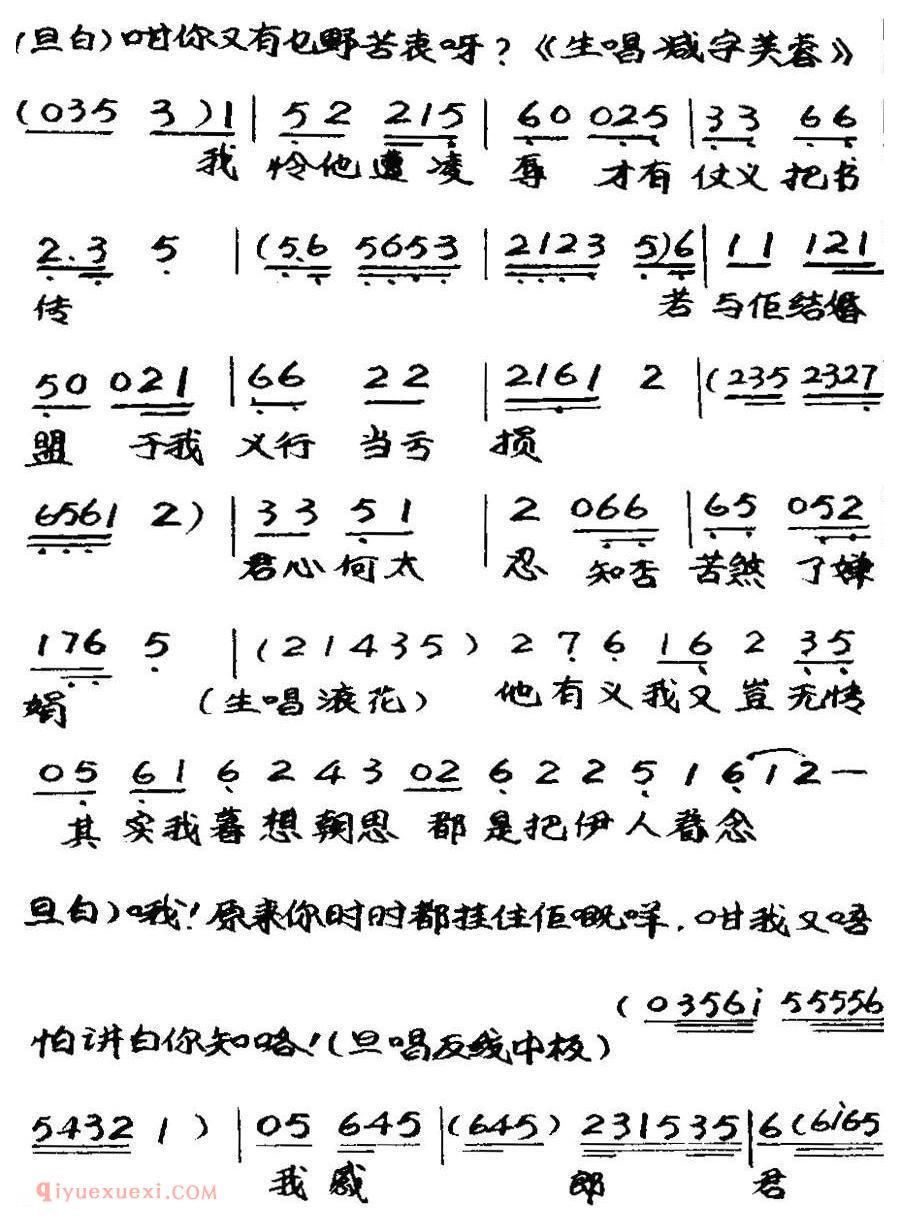 （旦白）咁你又有乜野苦衷呀？《生唱减字芙蓉》
(035 3)1 | 52 215 | 60 025 | 33 66
我 怜他遭凌 辱 才有 仗义 把书
2.3 5 | (5.6 5653 | 2123 5)6 | 11 121
传 若 与佢结婚
50 021 | 66 22 | 2161 2 | (235 2327
盟 于我 义行 当亏 损
6561 2) | 33 51 | 2 066 | 65 052
君心何太 忍 知否 苦煞 了婵
176 5 | (21435) 2 7 6 16 2 35
娟 （生唱滚花） 他有义我又岂无情
05 61 6 2 4 3 02 6 2 2 5 1 612—
其 实我暮想朝思 都是把伊人眷念
旦白）哦！原来你时时都挂住佢嘅咩，咁我又唔
(0356i 55556
怕讲白你知咯！（旦唱反线中板）
5432 1) | 05 645 | (645) 231535 | 6(6i65
我感 郎 君
qiyuexuexi.COM